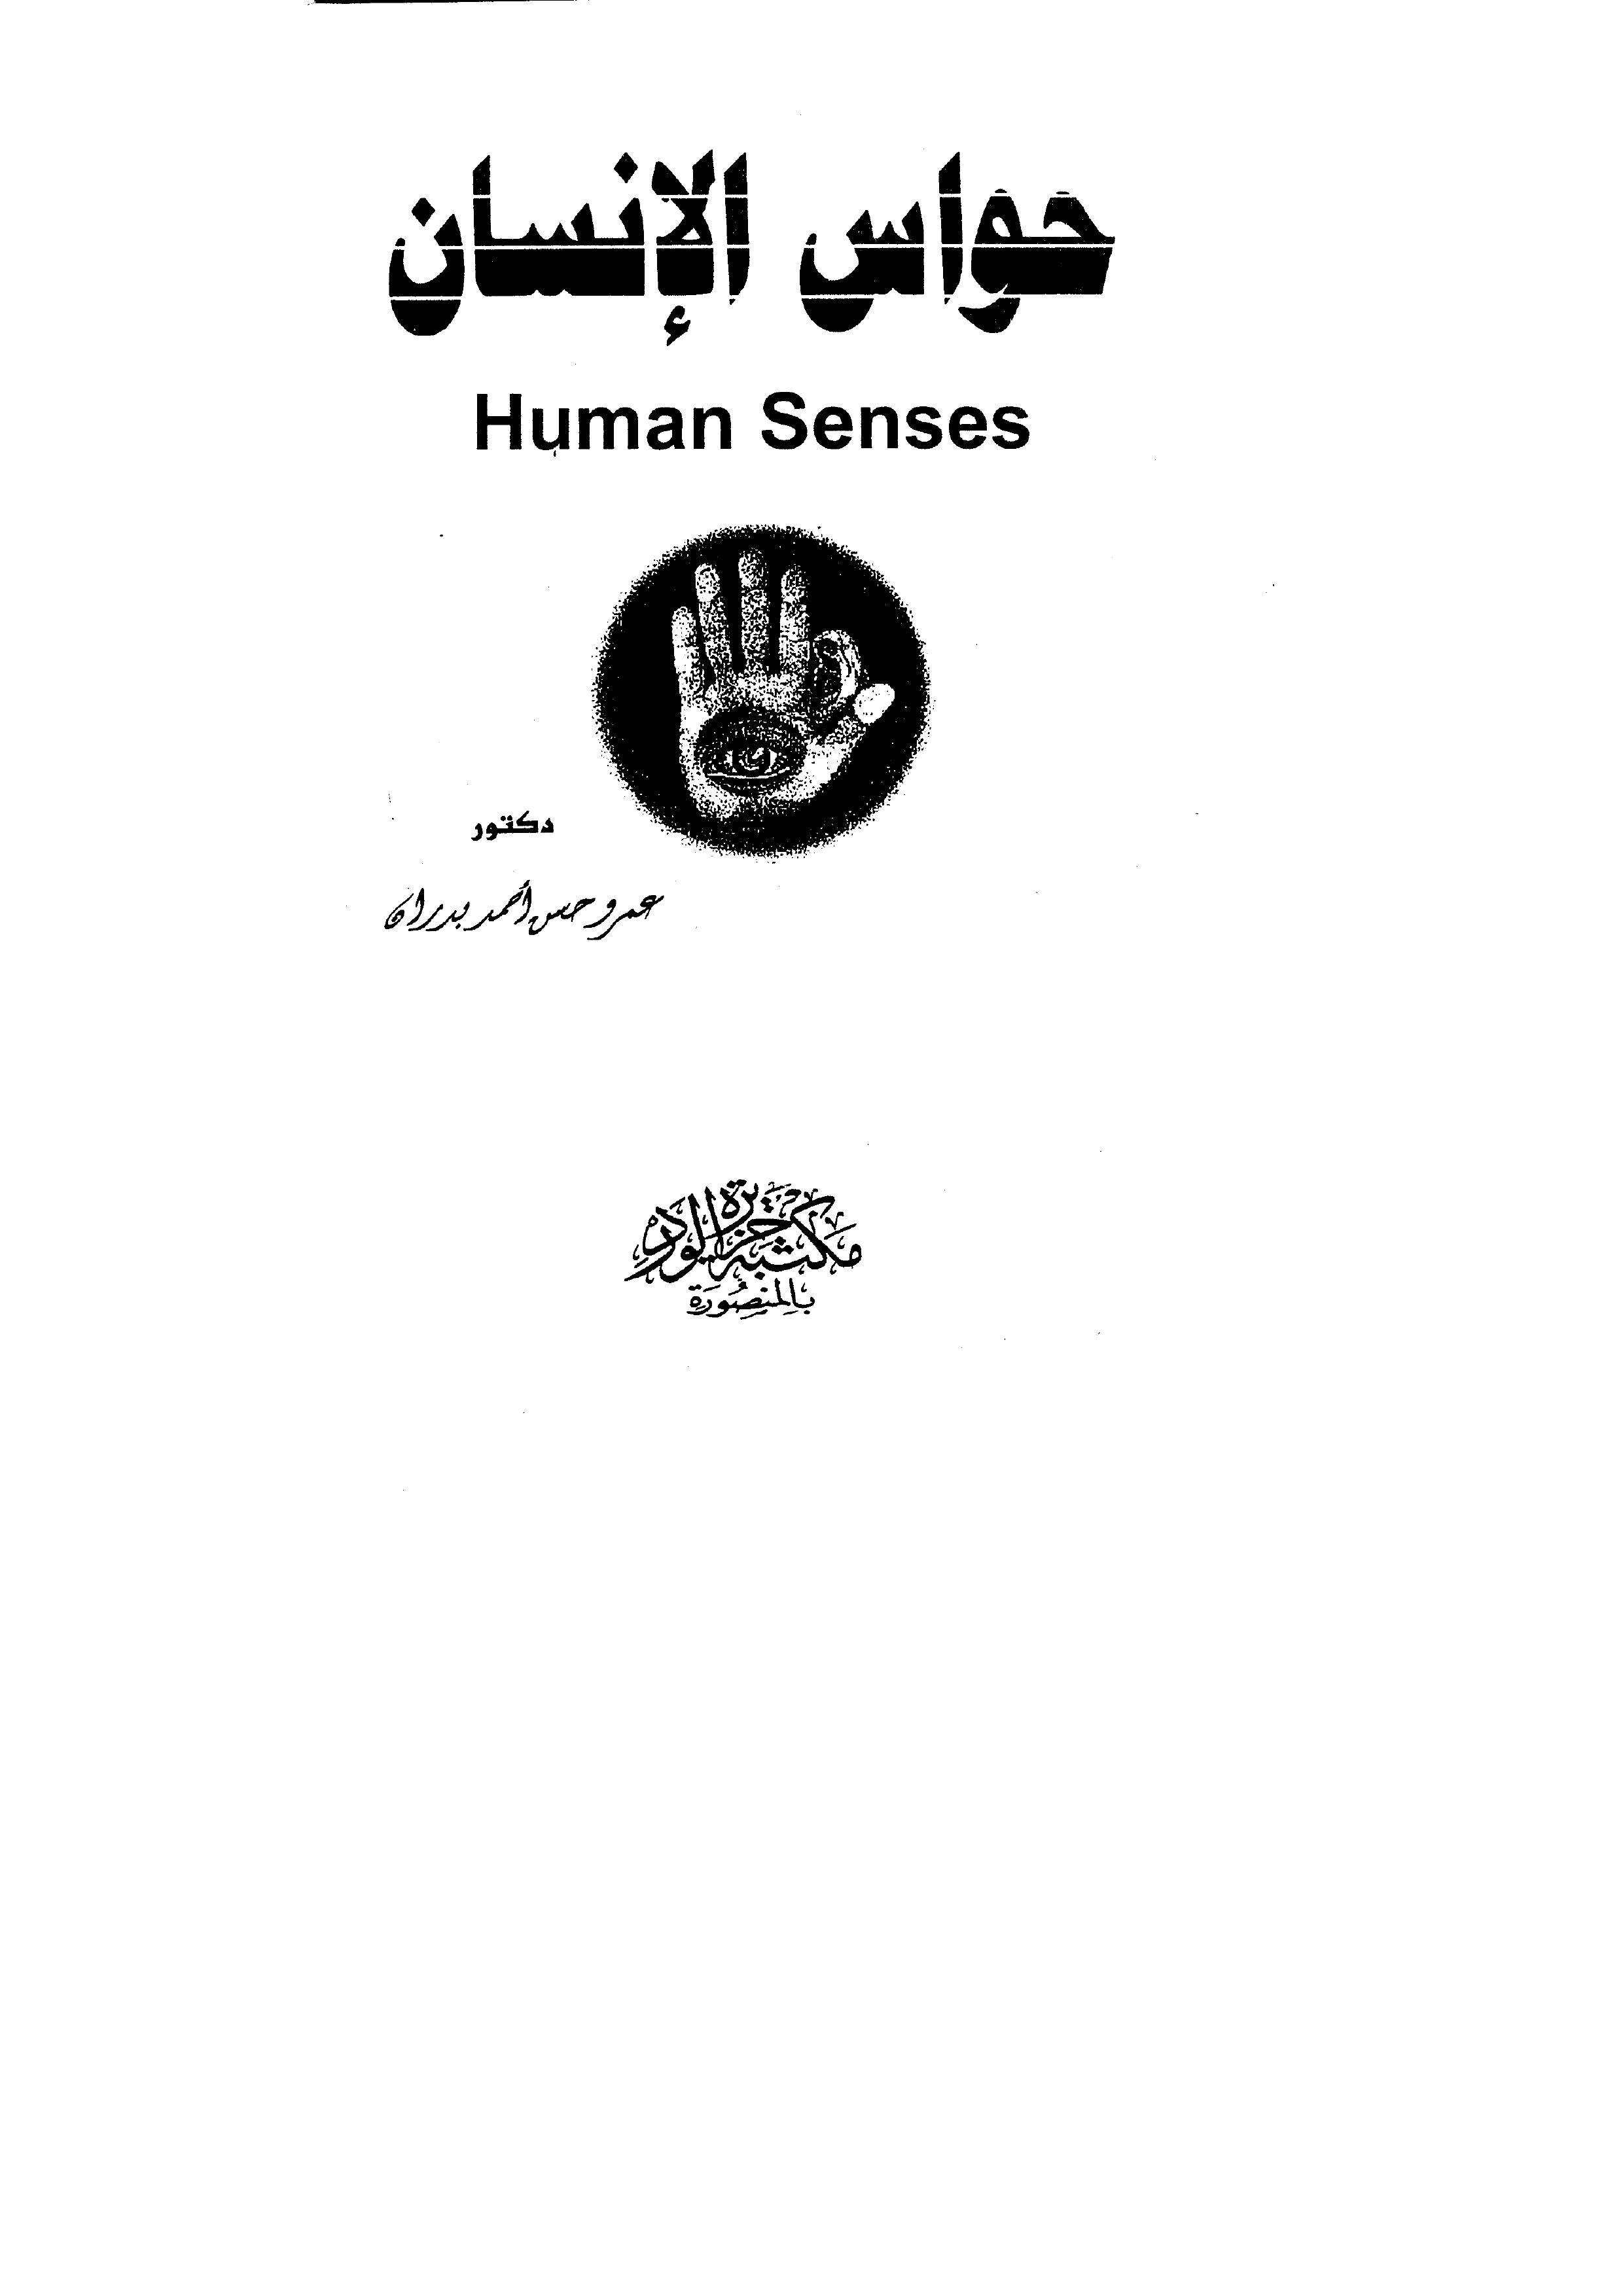 حواس الإنسان
Human Senses
دكتور
عمرو حسن أحمد بدران
مكتبة جزيرة الورد
بالمنصورة